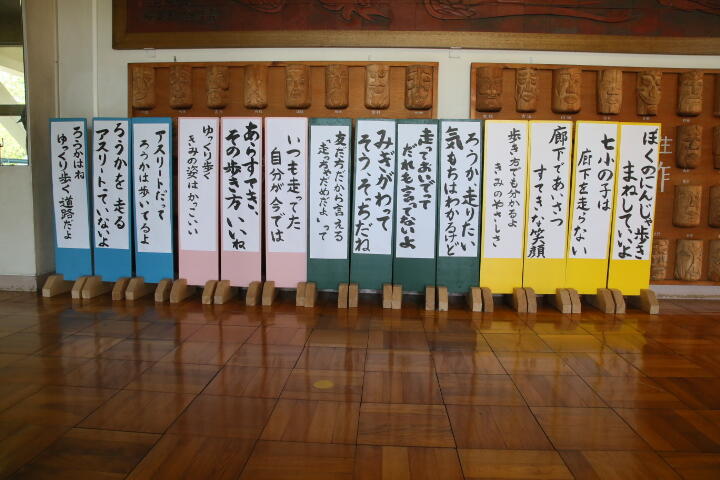 ぼくのにんじゃ歩き
まねしていいよ
七小の子は
廊下を走らない
廊下であいさつ
すてきな笑顔
歩き方でも分かるよ
きみのやさしさ
ろうか走りたい
気もちはわかるけど
走っておいでって
だれも言ってないよ
みぎがわって
そう、そっちだね
友だちだから言える
「走っちゃだめだよ」って
いつも走った
自分が今では
あらすてき、
その歩き方、いいね
ゆっくり歩く
きみの姿はかっこいい
アスリートだって
ろうかは歩いてるよ
ろうかを走る
アスリートっていないよ
ろうかはね
ゆっくり歩く道路だよ
作